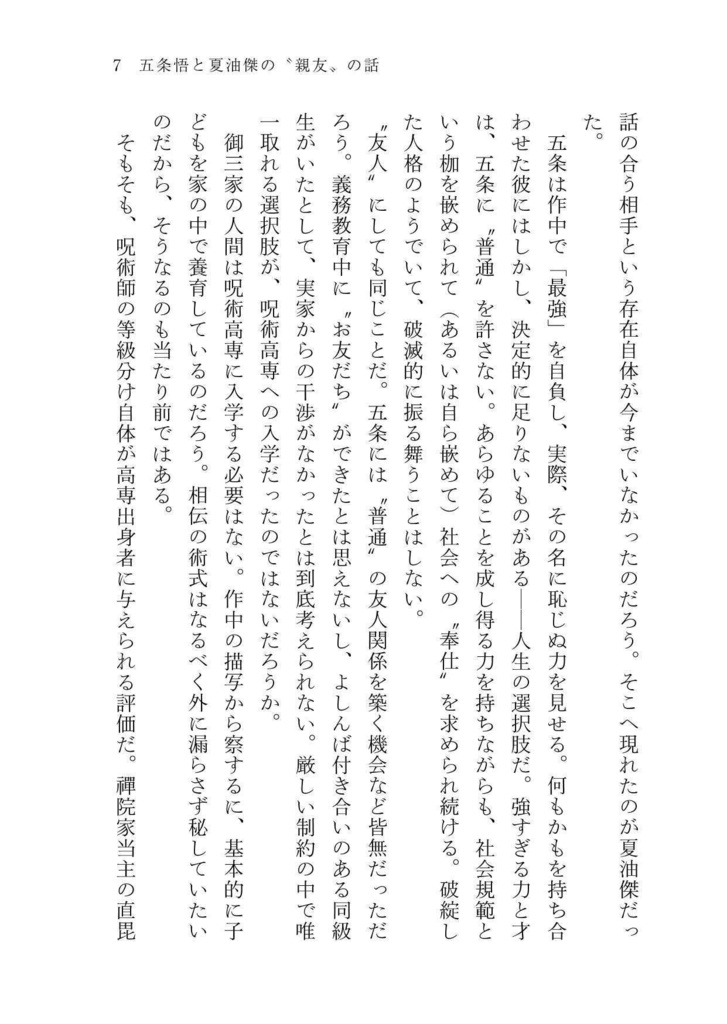 7 五条悟と夏油傑の〝親友〟の話
話の合う相手という存在自体が今までいなかったのだろう。そこへ現れたのが夏油傑だっ
た。
五条は作中で「最強」を自負し、実際、その名に恥じぬ力を見せる。何もかもを持ち合
わせた彼にはしかし、決定的に足りないものがある――人生の選択肢だ。強すぎる力と才
は、五条に〝普通〟を許さない。あらゆることを成し得る力を持ちながらも、社会規範と
いう枷を嵌められて（あるいは自ら嵌めて）社会への〝奉仕〟を求められ続ける。破綻し
た人格のようでいて、破滅的に振る舞うことはしない。
〝友人〟にしても同じことだ。五条には〝普通〟の友人関係を築く機会など皆無だっただ
ろう。義務教育中に〝お友だち〟ができたとは思えないし、よしんば付き合いのある同級
生がいたとして、実家からの干渉がなかったとは到底考えられない。厳しい制約の中で唯
一取れる選択肢が、呪術高専への入学だったのではないだろうか。
御三家の人間は呪術高専に入学する必要はない。作中の描写から察するに、基本的に子
どもを家の中で養育しているのだろう。相伝の術式はなるべく外に漏らさず秘していたい
のだから、そうなるのも当たり前ではある。
そもそも、呪術師の等級分け自体が高専出身者に与えられる評価だ。禪院家当主の直毘